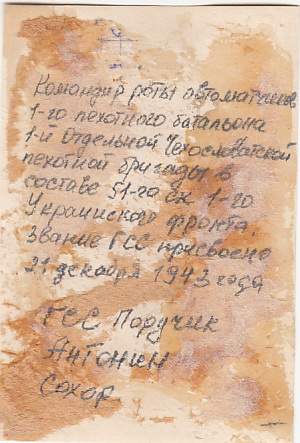 Командир роты автоматчиков
1-го пехотного батальона
1-й Отдельной Чехословатской
пехотной бригады в
составе 51-го ск 1-го
Украинского фронта.
Звание ГСС присвоено
21 декабря 1943 года
ГСС Поручик
Антонин
Сохор